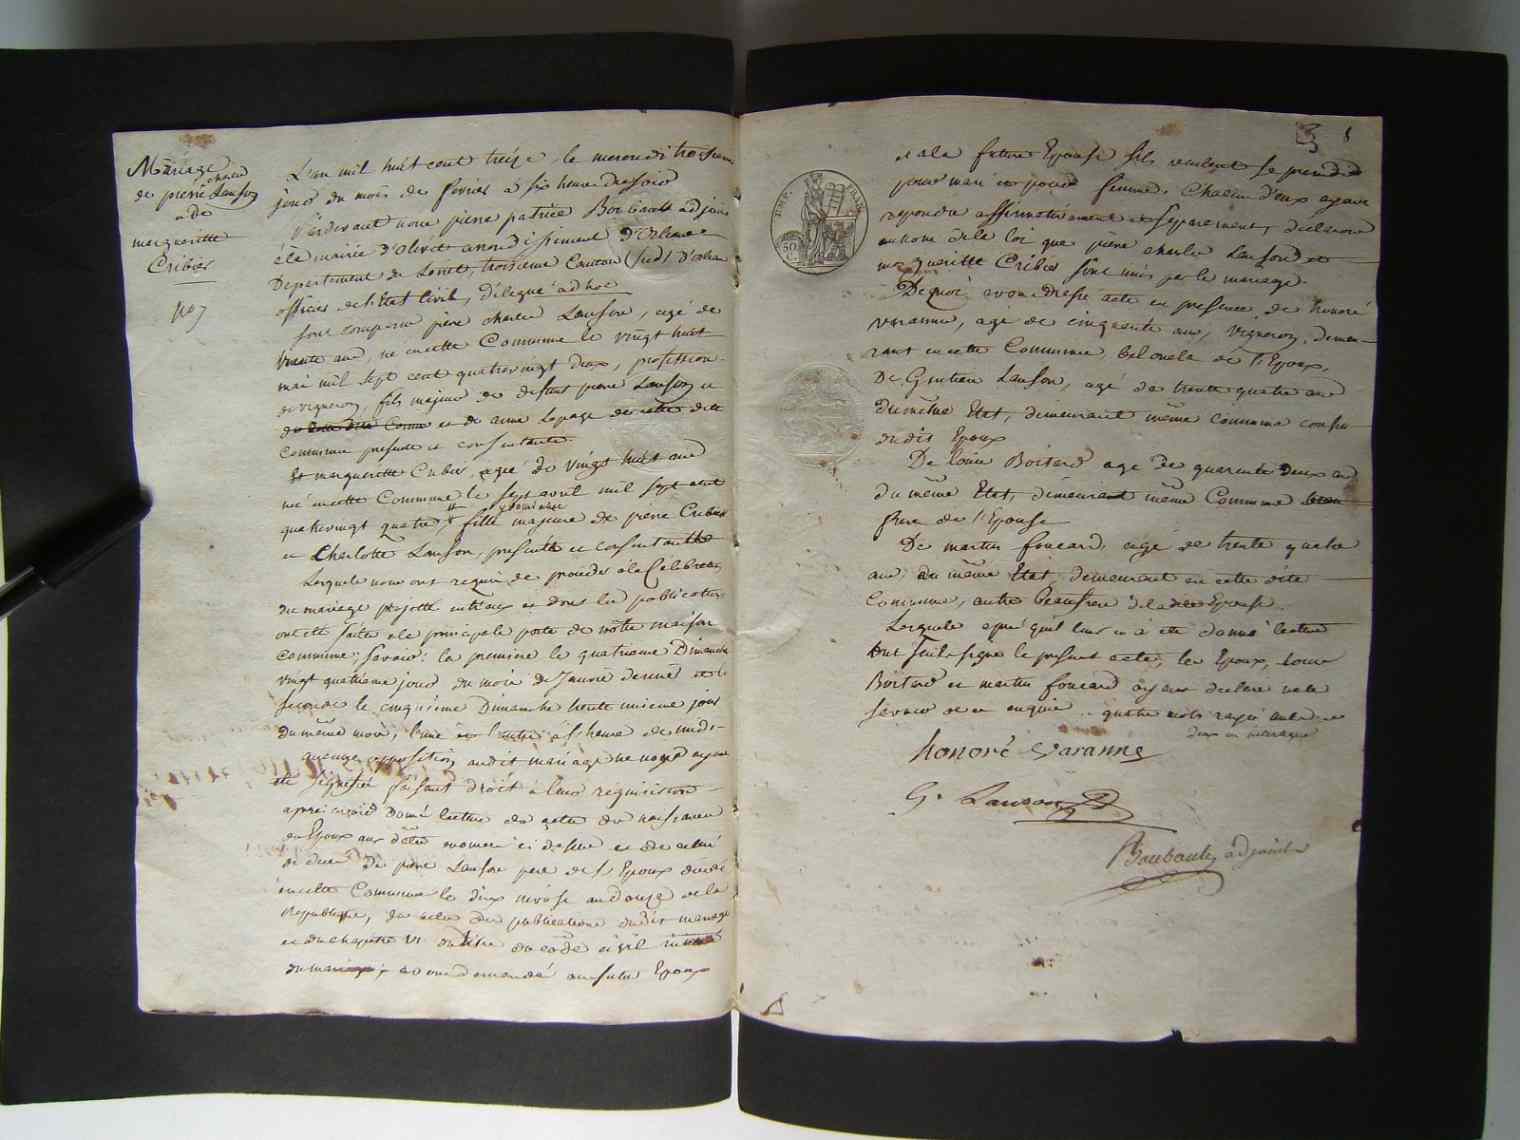 Mariage
de pierre charles Lanson
& de
margueritte
Cribier
No 7
L'an mil huit cent treize le mercredi troisieme
jour du mois de fevrier à six heures du soir
Pardevant nous pierre patrice Boubault adjoint
à la mairie d'olivet arrondissement D'Orleans
Departement du Loiret, troisieme Canton (sud) D'orleans
officier de l'Etat Civil, délégué ad hoc
sont comparu pierre charles Lanson, agé de
trente ans, né en cette Commune le vingt huit
mai mil sept cent quatrevingt deux, profession
de vigneron, fils majeur de defunt pierre Lanson et
de et de anne Lepage de cette dite
commune presente et consentante
Et margueritte Cribier, agée de vingt huit ans
né en cette Commune le sept avril mil sept cent
quatrevingt quatre, fille majeure de pierre Cribier
et Charlotte Lanson, presents et consentants
Lesquels nous ont requis de proceder à la Célébration
du mariage projetté entr'eux et dont les publications
ont été faites à la principale porte de notre maison
commune; savoir: la premiere le quatrieme Dimanche
vingt quatrieme jour du mois de Janvier dernier et la
seconde le cinquieme Dimanche trente unieme jour
du même mois, l'une et l'autre à l'heure de midi
aucune opposition audit mariage ne nous ayant
été signifiée faisant droit à leur requisition
après avoir donné lecture des actes de naissance
des Epoux aux dattes enoncées ci dessus et de celui
de deces de pierre Lanson pere de l'Epoux décédé
en cette Commune le dix nivose an douze de la
Republique, des actes de publications dudit mariage
et du chapitre VI du titre du code civil intitulé
du mariage; avons demandé au futur Epoux
et à la future Epouse s'ils veulent se prendre
pour mari et pour femme, Chacun d'eux ayant
repondu affirmativement et separement, déclarons
au nom de la loi que pierre charles Lanson et
margueritte Cribier sont unis par le mariage.
De quoi avons dressé acte en presence de honoré
Varanne, agé de cinquante ans, vigneron, demeu-
rant en cette Commune, bel oncle de l'Epoux,
De Gentien Lanson, agé de trente quatre ans
du même Etat, demeurant même commune cousin
dudit Epoux
De louis Boitard agé de quarante deux ans
du même Etat, demeurant même Commune beau
frere de l'Epouse
De martin foucard, agé de trente quatre
ans du même Etat demeurant en cette dite
Commune, autre beaufrere de la dite Epouse.
Lesquels après qu'il leur en a été donné lecture
ont signé le present acte, les Epoux, louis
Boitard et martin foucard ayant declaré ne le
savoir de ce enquis. quatre mots rayés nuls
honoré Varanne
G. Lanson
Boubault adjoint
TIMP. FRANC.
50 C.